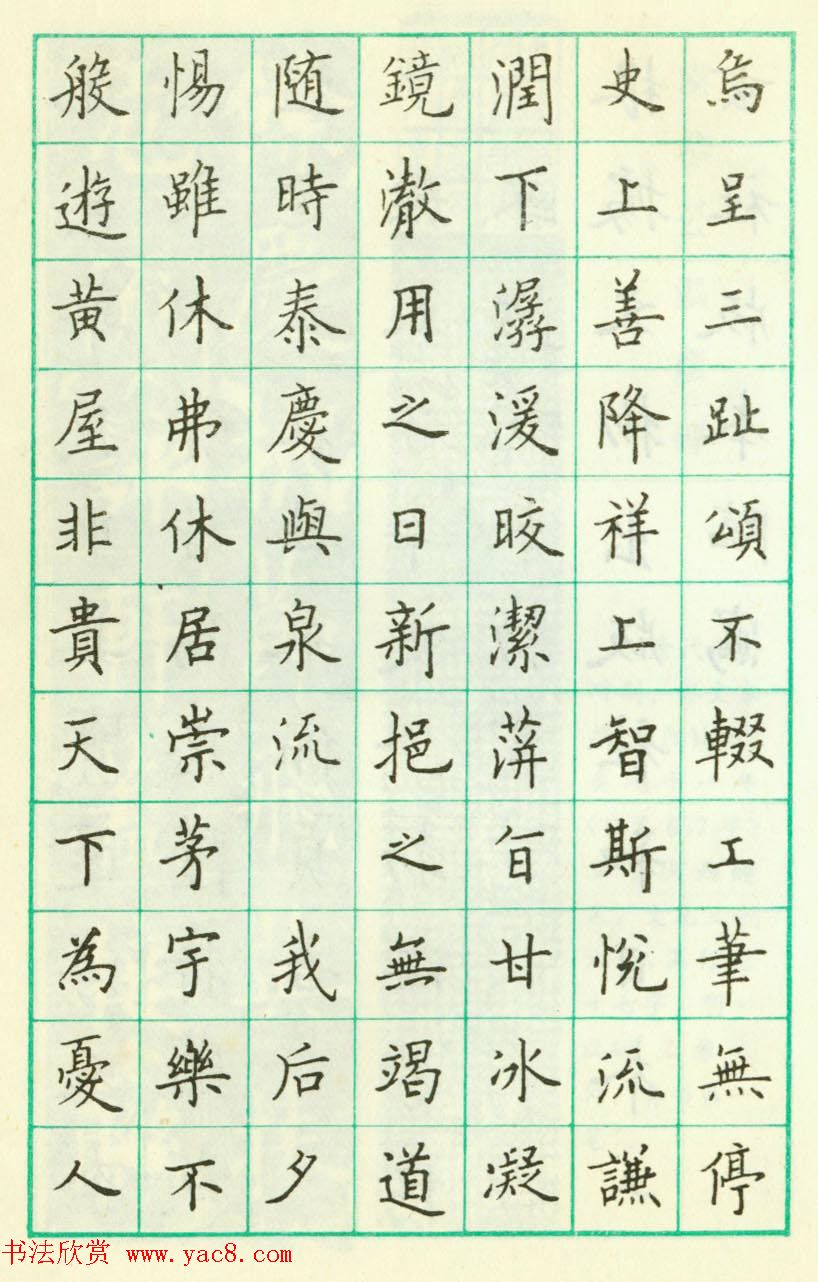 烏呈三趾頌不輟工筆無停
史上善降祥上智斯悅流謙
潤下潺湲皎潔蓱旨甘冰凝
鏡澈用之日新挹之無竭道
随時泰慶與泉流我后夕
惕雖休弗休居崇茅宇樂不
般遊黃屋非貴天下為憂人
书法欣赏 www.yac8.com